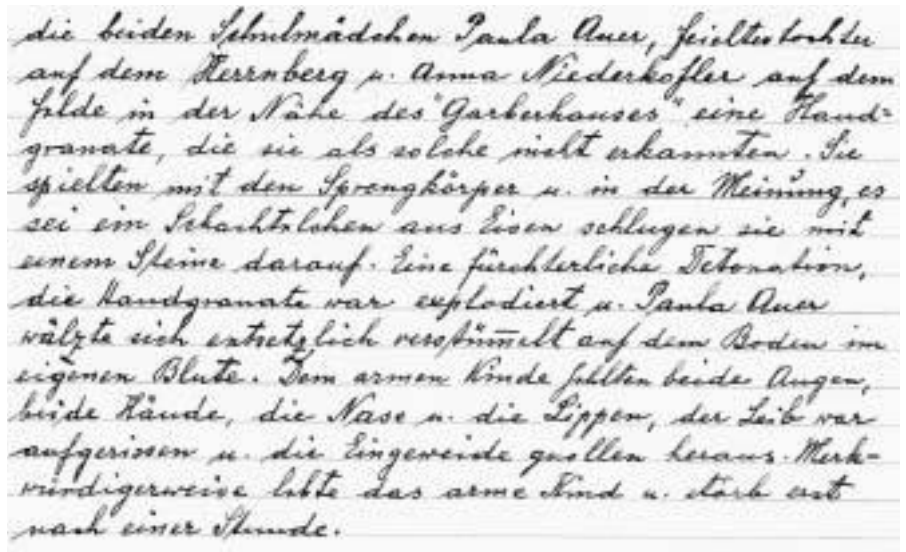 die beiden Schulmädchen Paula Auer, Feicltertochter
auf dem Herrnberg u. Anna Niederkofler auf dem
Felde in der Nähe des "Garberhauses" eine Hand=
granate, die sie als solche nicht erkannten. Sie
spielten mit den Sprengkörper u. in der Meinung, es
sei ein Schachtelchen aus Eisen schlugen sie mit
einem Steine darauf. Eine fürchterliche Detonation,
die Handgranate war explodiert u. Paula Auer
wälzte sich entsetzlich verstüm̅elt auf dem Boden im
eigenen Blute. Dem armen Kinde fehlten beide Augen,
beide Hände, die Nase u. die Lippen, der Leib war
aufgerissen u. die Eingeweide quollen heraus. Merk=
würdigerweise lebte das arme Kind u. starb erst
nach einer Stunde.